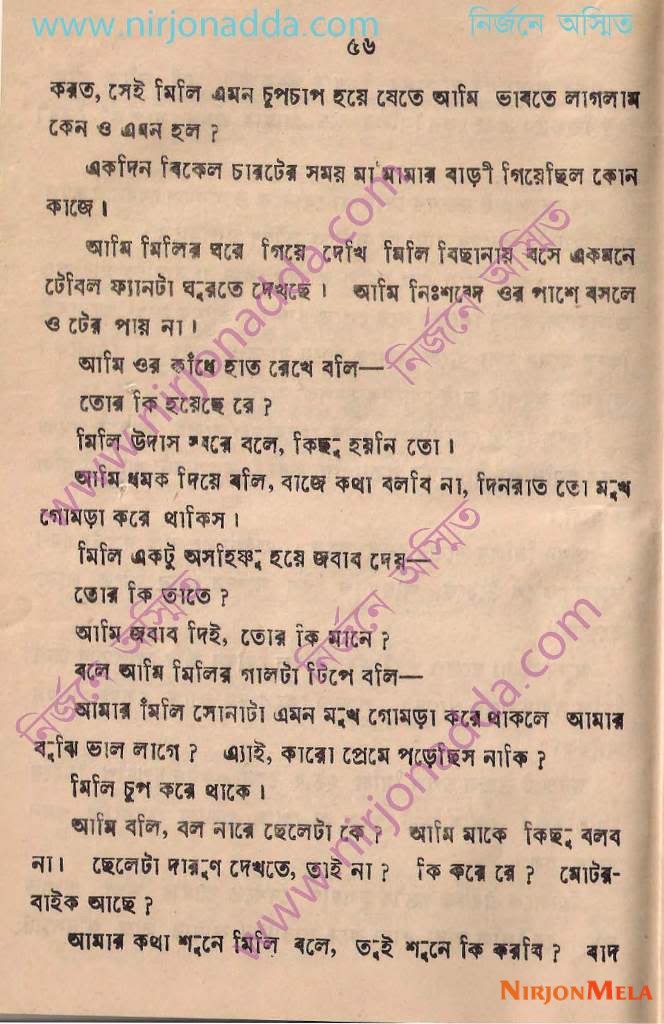 www.nirjonadda.com নির্জনে অস্মিত
৫৬
করত, সেই মিলি এমন চুপচাপ হয়ে যেতে আমি ভাবতে লাগলাম
কেন ও এমন হল ?
একদিন বিকেল চারটের সময় মা মামার বাড়ী গিয়েছিল কোন
কাজে ।
আমি মিলির ঘরে গিয়ে দেখি মিলি বিছানায় বসে একমনে
টেবিল ফ্যানটা ঘুরতে দেখছে । আমি নিঃশব্দে ওর পাশে বসলে
ও টের পায় না ।
আমি ওর কাঁধে হাত রেখে বলি—
তোর কি হয়েছে রে ?
মিলি উদাস স্বরে বলে, কিছু হয়নি তো ।
আমি ধমক দিয়ে বলি, বাজে কথা বলবি না, দিনরাত তো মুখ
গোমড়া করে থাকিস ।
মিলি একটু অসহিষ্ণু হয়ে জবাব দেয়—
তোর কি তাতে ?
আমি জবাব দিই, তোর কি মানে ?
বলে আমি মিলির গালটা টিপে বলি—
আমার মিলি সোনাটা এমন মুখ গোমড়া করে থাকলে আমার
বুঝি ভাল লাগে ? এ্যাই, কারো প্রেমে পড়েছিস নাকি ?
মিলি চুপ করে থাকে ।
আমি বলি, বল নারে ছেলেটা কে ? আমি মাকে কিছু বলব
না। ছেলেটা দারুণ দেখতে, তাই না ? কি করে রে ? মোটর-
বাইক আছে ?
আমার কথা শুনে মিলি বলে, তুই শুনে কি করবি ? বাদ
www.nirjonadda.com
নির্জনে অস্মিত
নির্জনে অস্মিত
নির্জনে অস্মিত
www.nirjonadda.com
NIRJONMELA